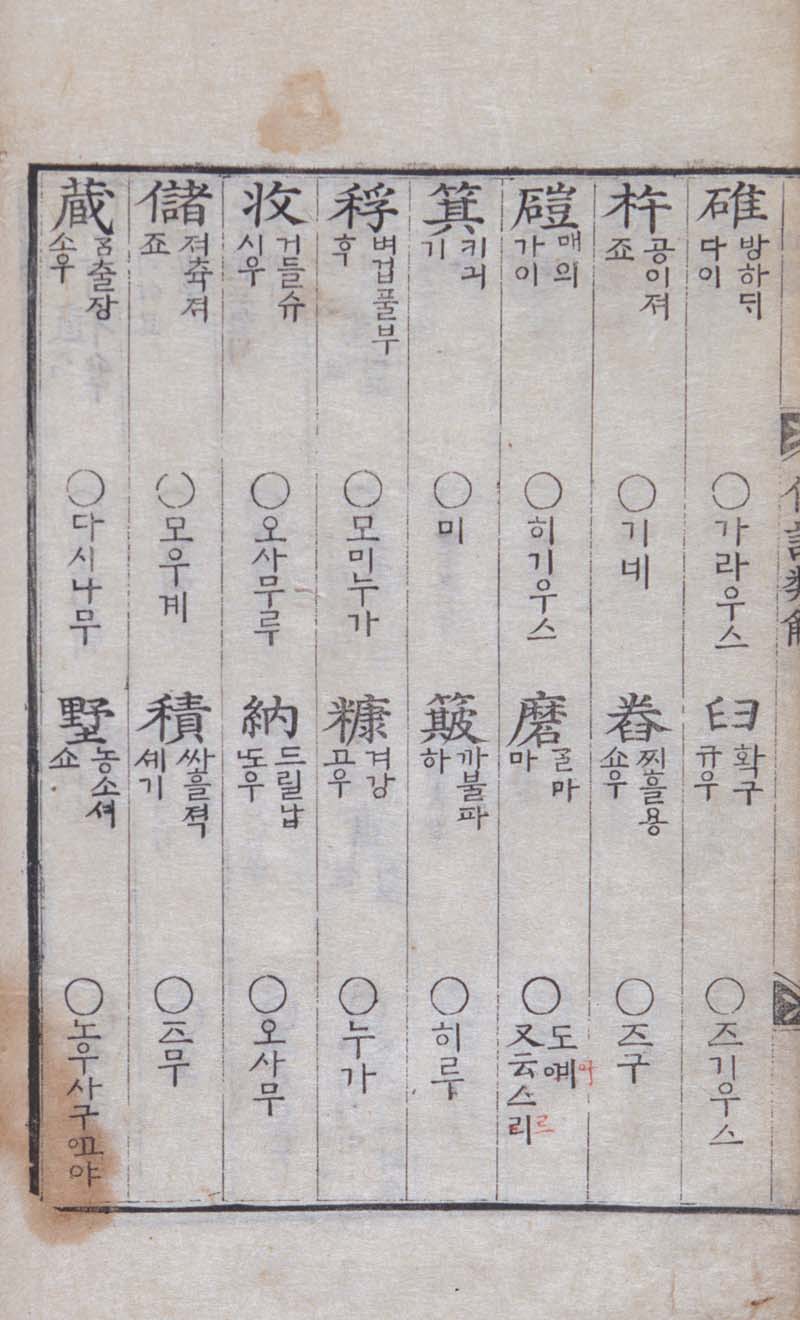 碓 방하듸 다이 ○가라우스
臼 확구 규우 ○즈기우스
杵 공이져 죠 ○기네
舂 찌흘용 쇼우 ○즈구
磑 매의 가이 ○히기우스
磨 글마 마 ○도예 又云스리 르
箕 키긔 기 ○미
簸 까불파 하 ○히루
稃 벼겁풀부 후 ○모미누가
糠 겨강 고우 ○누가
收 거들슈 시우 ○오사무루
納 드릴납 노우 ○오사무
儲 져츅져 죠 ○모우계
積 싸흘젹 셰기 ○즈무
蔵 출장 소우 ○다시나무
墅 농소셔 쇼 ○노우사구